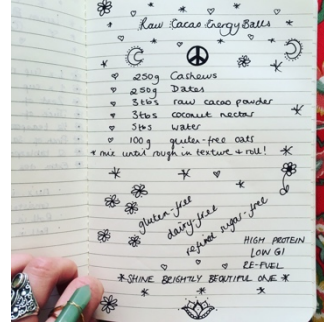 Raw Cacao Energy Balls
250g Cashews
250g Dates
3tbs raw cacao powder
3tbs coconut nectar
5tbs water
100g gluten-free oats
* mix until rough in texture & roll!
gluten-free
dairy-free
refined sugar-free
HIGH PROTEIN
LOW GI
RE-FUEL
*SHINE BRIGHTLY BEAUTIFUL ONE*